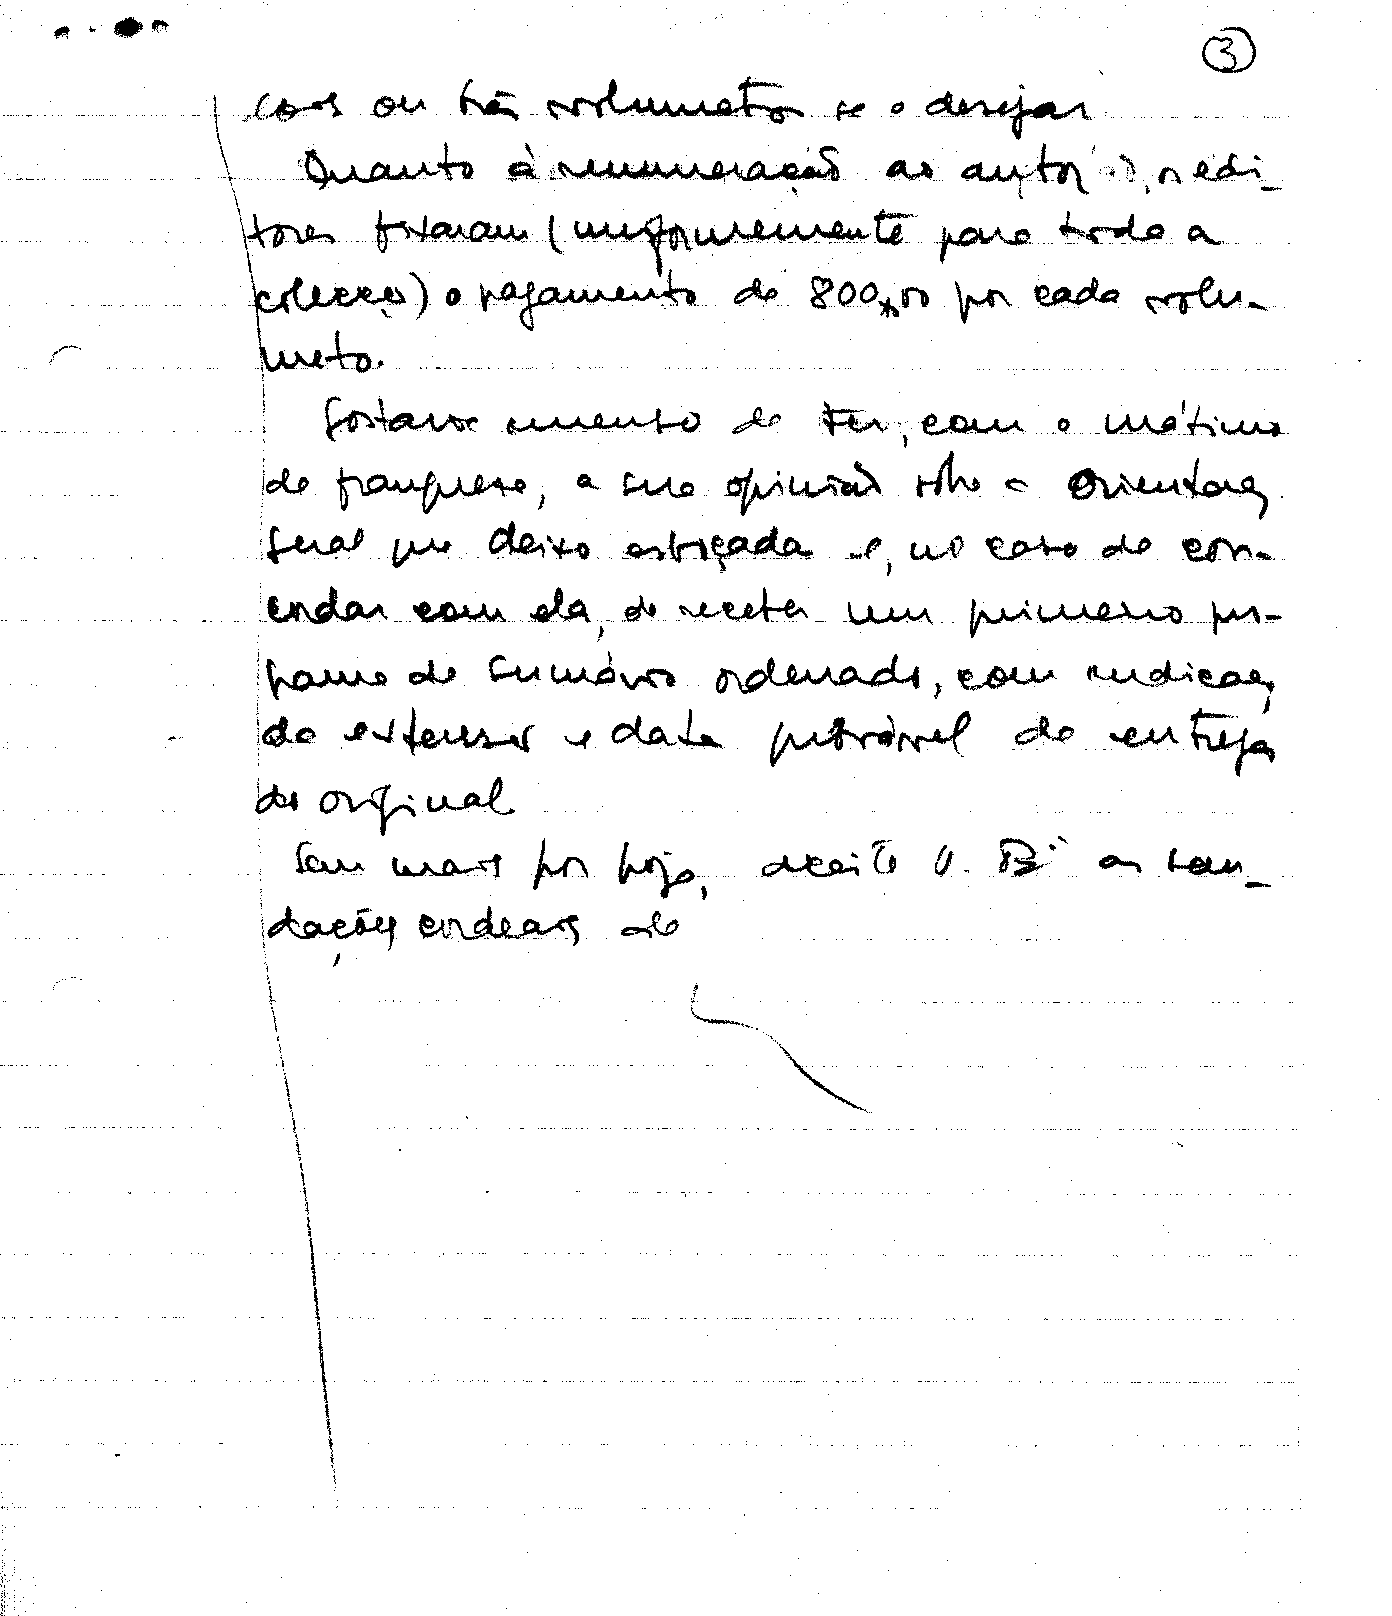 3
ou três volumetos se o desejar
Quanto à remuneração ao autor, os edi-
tores fixaram (uniformemente para toda a
colecção) o pagamento de 800$00 por cada volu-
meto.
Gostava imenso de ter, com o máximo
de franqueza, a sua opinião sobre a orientação
geral que deixo esboçada e, no caso de con-
cordar com ela, de receber um primeiro pro-
grama de sumário ordenado, com indicação
da extensão e data provável de entrega
do original
Sem mais por hoje, aceite V. as sau-
dações cordeais de